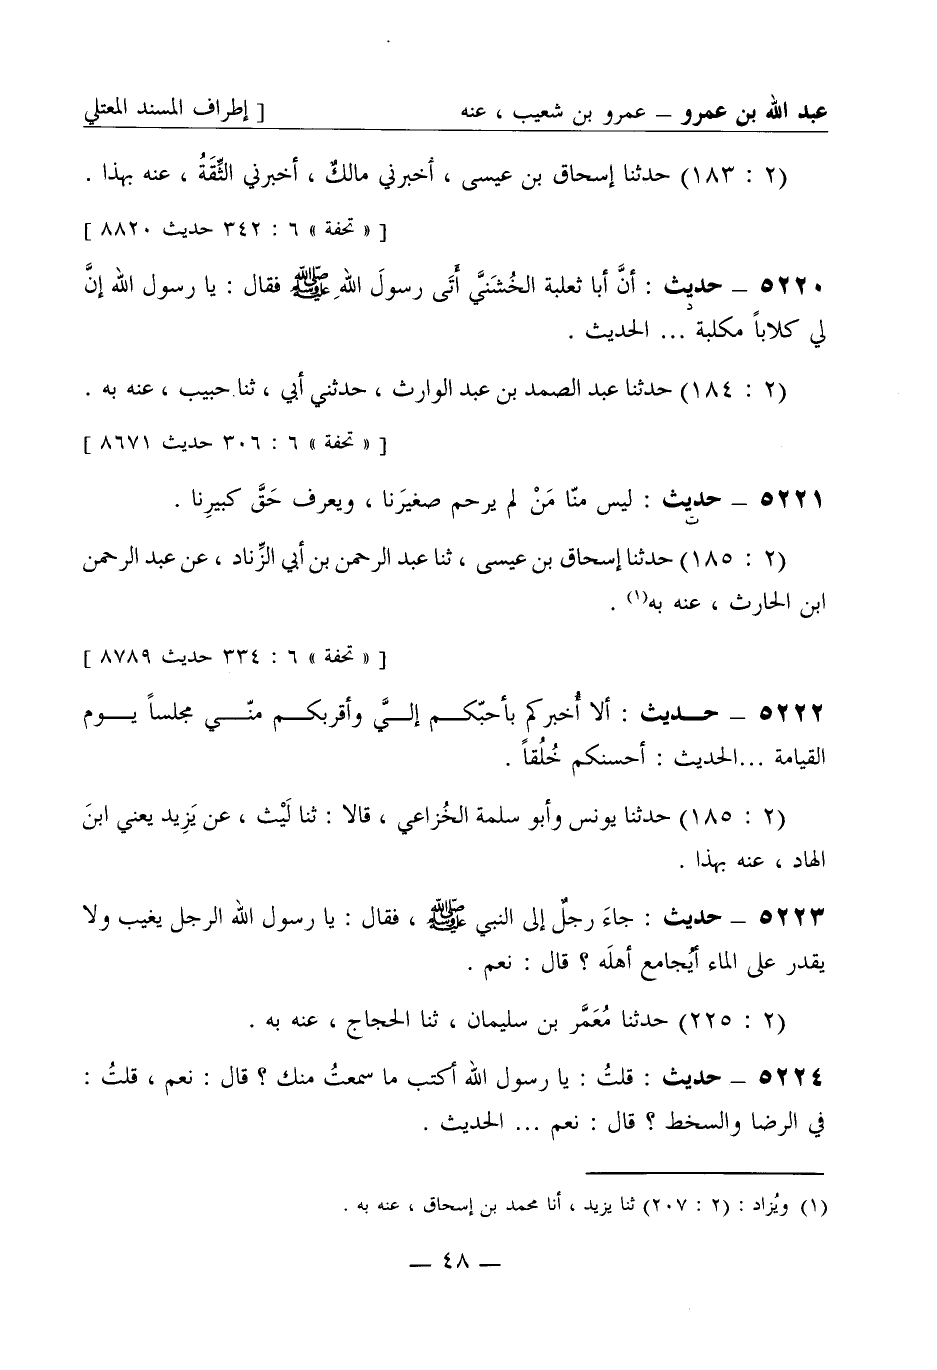 عبد الله بن عمرو – عمرو بن شعيب ، عنه [ إطراف المسند المعتلي
(٢ : ١٨٣) حدثنا إسحاق بن عيسى ، أخبرني مالكٌ ، أخبرني الثِّقَةُ ، عنه بهذا .
[ « تحفة » ٦ : ٣٤٢ حديث ٨٨٢٠ ]
٥٢٢٠ – حديث : أنَّ أبا ثعلبة الخُشَنيَّ أَتَى رسولَ اللهِ ﷺ فقال : يا رسول الله إنَّ
د
لي كلاباً مكلبة ... الحديث .
(٢ : ١٨٤) حدثنا عبد الصمد بن عبد الوارث ، حدثني أبي ، ثنا حبيب ، عنه به .
[ « تحفة » ٦ : ٣٠٦ حديث ٨٦٧١ ]
٥٢٢١ – حديث : ليس منّا مَنْ لم يرحم صغيرَنا ، ويعرف حَقَّ كبيرِنا .
ت
(٢ : ١٨٥) حدثنا إسحاق بن عيسى ، ثنا عبد الرحمن بن أبي الزِّناد ، عن عبد الرحمن
ابن الحارث ، عنه به(١) .
[ « تحفة » ٦ : ٣٣٤ حديث ٨٧٨٩ ]
٥٢٢٢ – حـديث : ألا أُخبركم بأحبّكـم إلـيَّ وأقربكـم منّـي مجلساً يـوم
القيامة ...الحديث : أحسنكم خُلُقاً .
(٢ : ١٨٥) حدثنا يونس وأبو سلمة الخُزاعي ، قالا : ثنا لَيْث ، عن يَزِيد يعني ابنَ
الهاد ، عنه بهذا .
٥٢٢٣ – حديث : جاءَ رجلٌ إلى النبي ﷺ ، فقال : يا رسول الله الرجل يغيب ولا
يقدر على الماء أيُجامع أهلَه ؟ قال : نعم .
(٢ : ٢٢٥) حدثنا مُعَمَّر بن سليمان ، ثنا الحجاج ، عنه به .
٥٢٢٤ – حديث : قلتُ : يا رسول الله أكتب ما سمعتُ منك ؟ قال : نعم ، قلتُ :
في الرضا والسخط ؟ قال : نعم ... الحديث .
(١) ويُزاد : (٢ : ٢٠٧) ثنا يزيد ، أنا محمد بن إسحاق ، عنه به .
– ٤٨ –